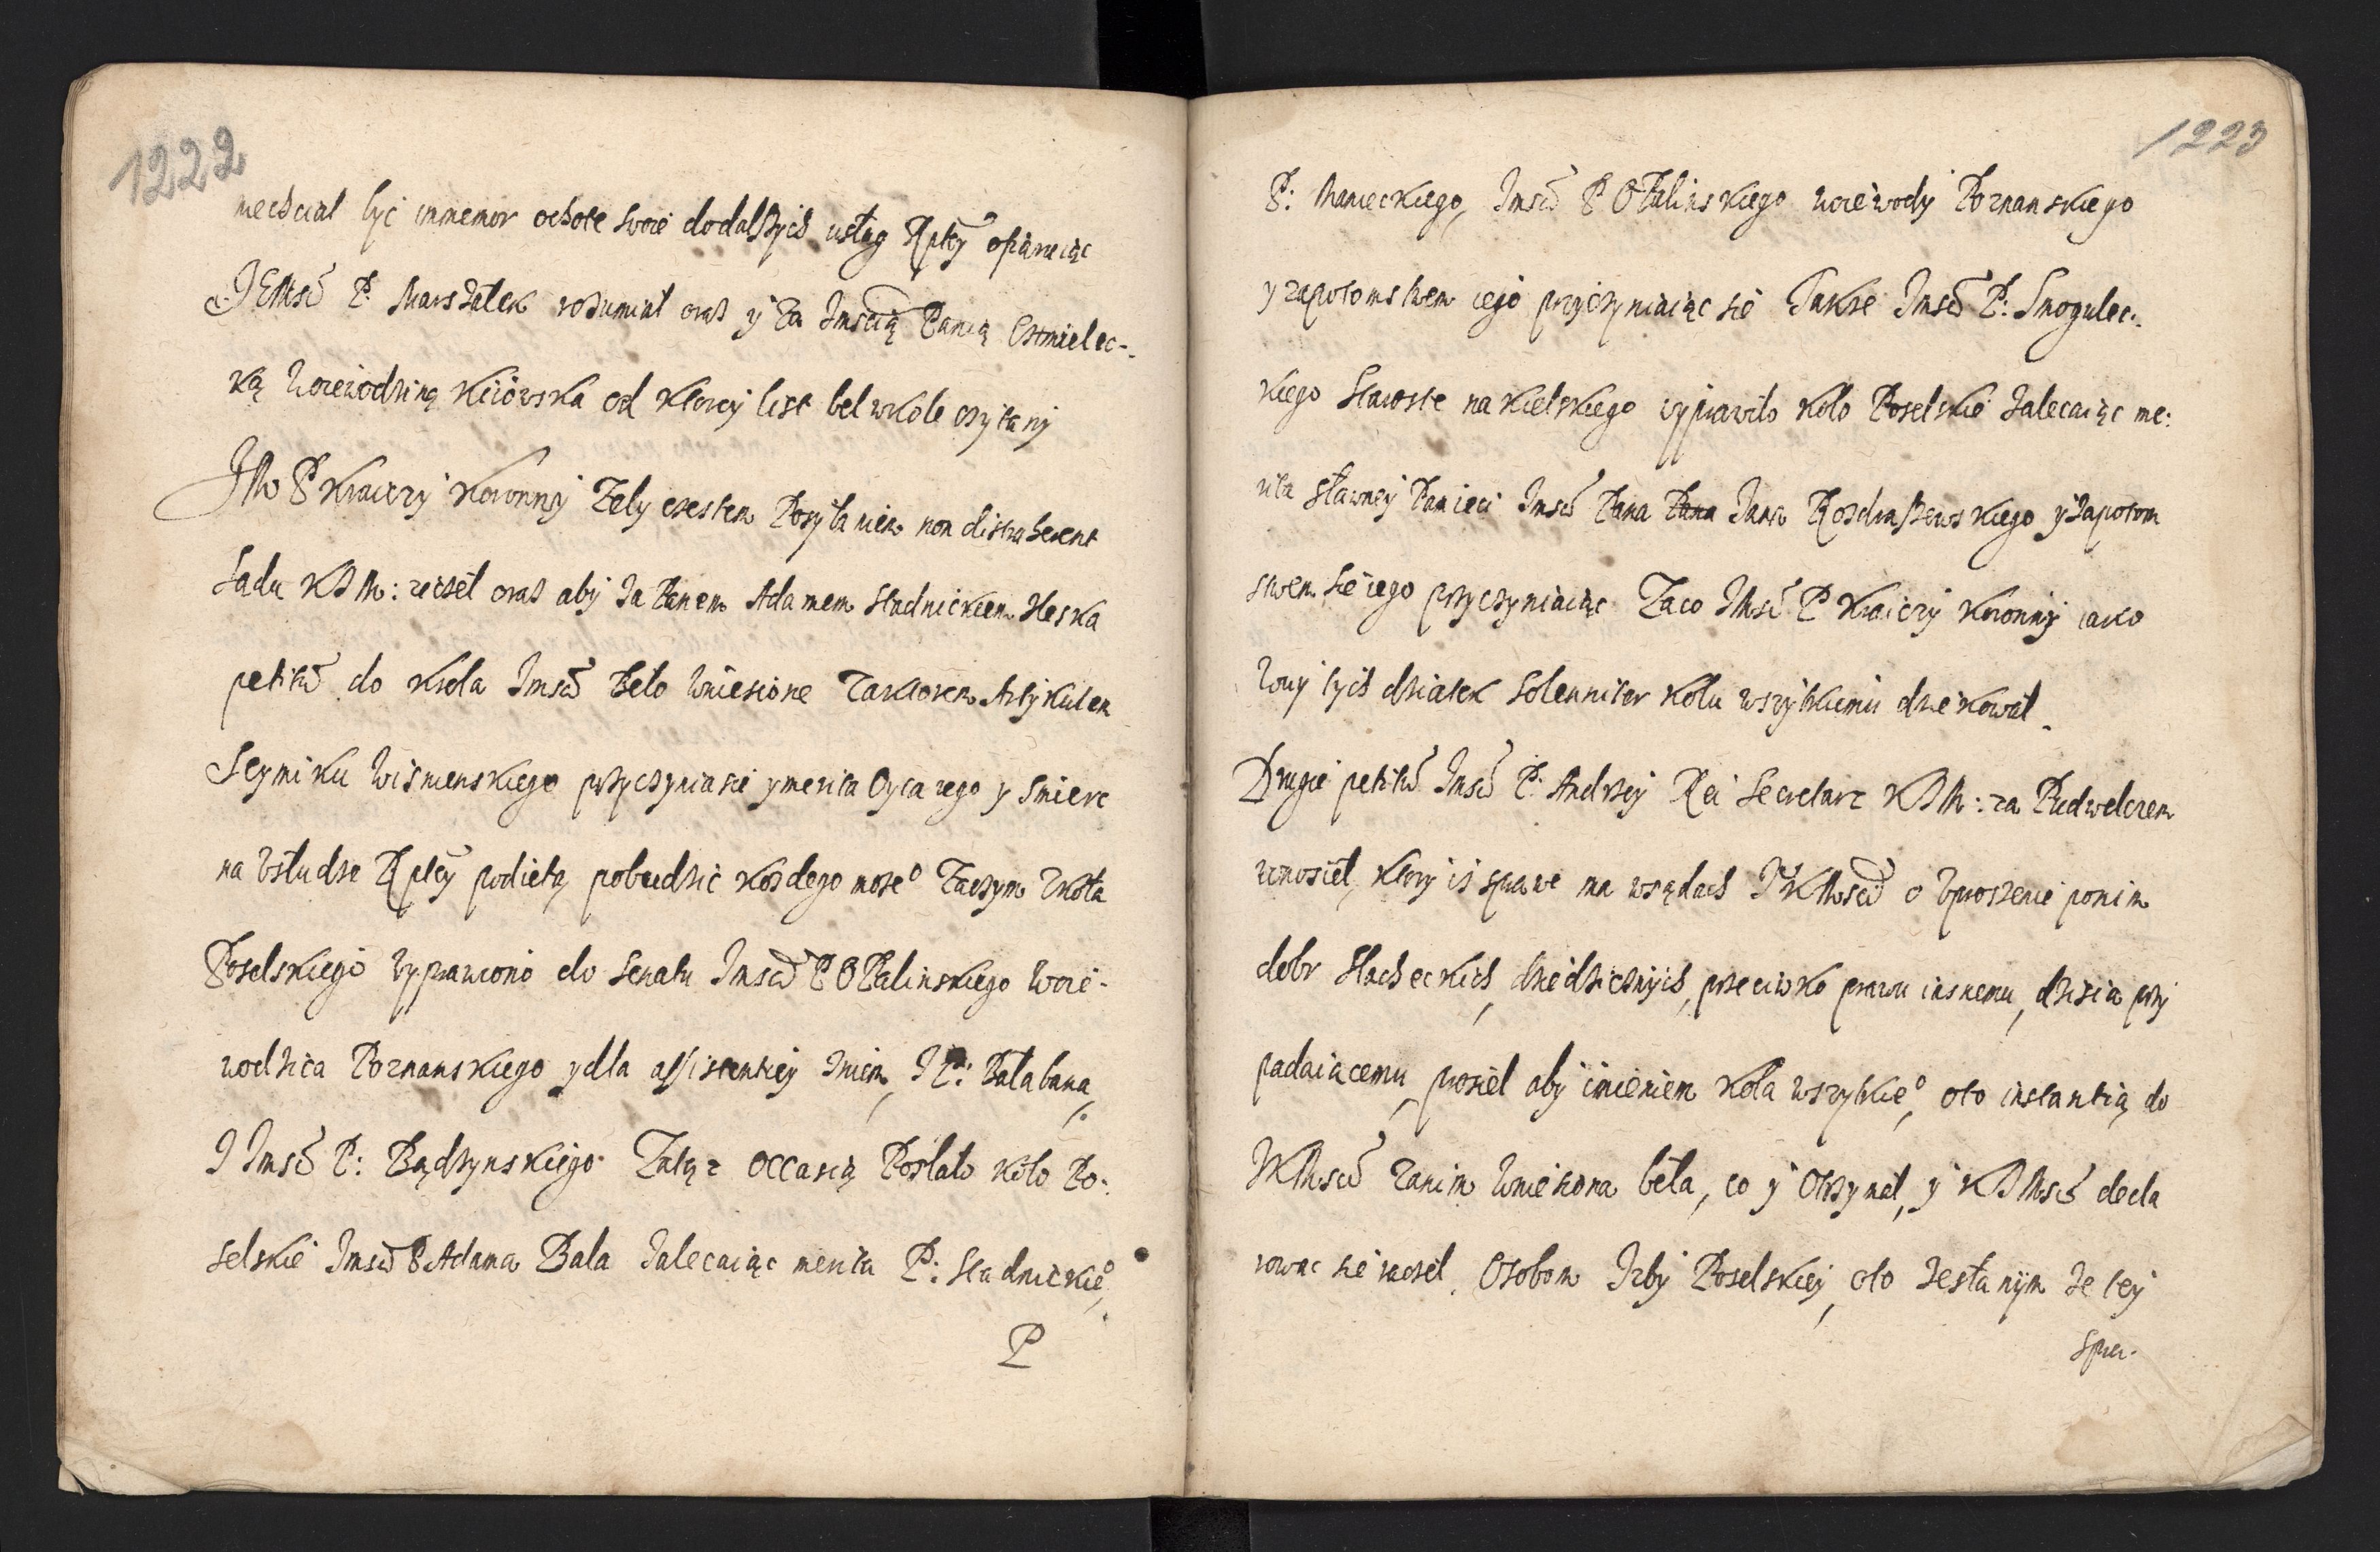 1222
niechciał być immemor ochote swoie dodalszych usług Rptey ofiaruiąc
JEMsć P. Marszałek rozumiał oraz y za Jmscią Panią Chmielec-
ką Woiewodziną Kiiowska od ktorey list beł wkole czytany
JMć P Kraiczy Koronny Zeby czestem Posyłaniem non distraherent
Sadu KJM: rzekł oraz aby za Panem Adamem Stadnickiem Leska
petitű do Krola Jmsci beło wniesione Zaktorem Artykułem
Seymiku Wismenskiego przyczynia sie y merita Oyca iego y smierc
na usłudze Rptey podieta pobudzić kozdego moze° Zaczym Zkoła
Poselskiego Wyprawiono do Senatu Jmsci P Opalinskiego Woie-
wodzica Poznanskiego y dla assistentiey Jniem, J P: Bałabana,
J Jmsci P: Bądzynskiego. Zatąz occasią Posłało koło Po-
selskie Jmsci P Adama Bala Zalecaiąc merita P: Stadnickie°,
P
1223
P: Manieckiego, Jmsci P Opalinskiego woiewody Poznanskiego
y zapotomstwem iego przyczyniaiąc sie Takze Jmsci P: Smogulec-
kiego Staroste nakielskiego wyprawiło koło Poselskie Zalecaiąc me:
rita sławney Pamięci Jmsci Pana Pana Jana Rozdrazewskiego y zapotom
stwem sie iego przyczyniaiąc Zaco JMsć P Kraiczy Koronny iako
Wuy tych dziatek Solenniter kołu wszytkiemu dziekował.
Drugie petitű Jmsć P: Andrzey Rei Secretarz KJM: za Pudwelczem
wnosieł, ktory iz sprawe ma wsądach JKMsci o Vproszenie ponim
dobr slacheckich, dziedzicznych, przeciwko prawu iasnemu, dzisia przy
padaiącemu, prosieł aby imieniem koła wszytkie°, oto instantią do
JKMsci zanim wniesiona beła, co y otrzymał, y KJMsć decla
rowac sie raczeł. Osobom Jzby Poselskiey, oto Zesłanym Ze tey
spra-